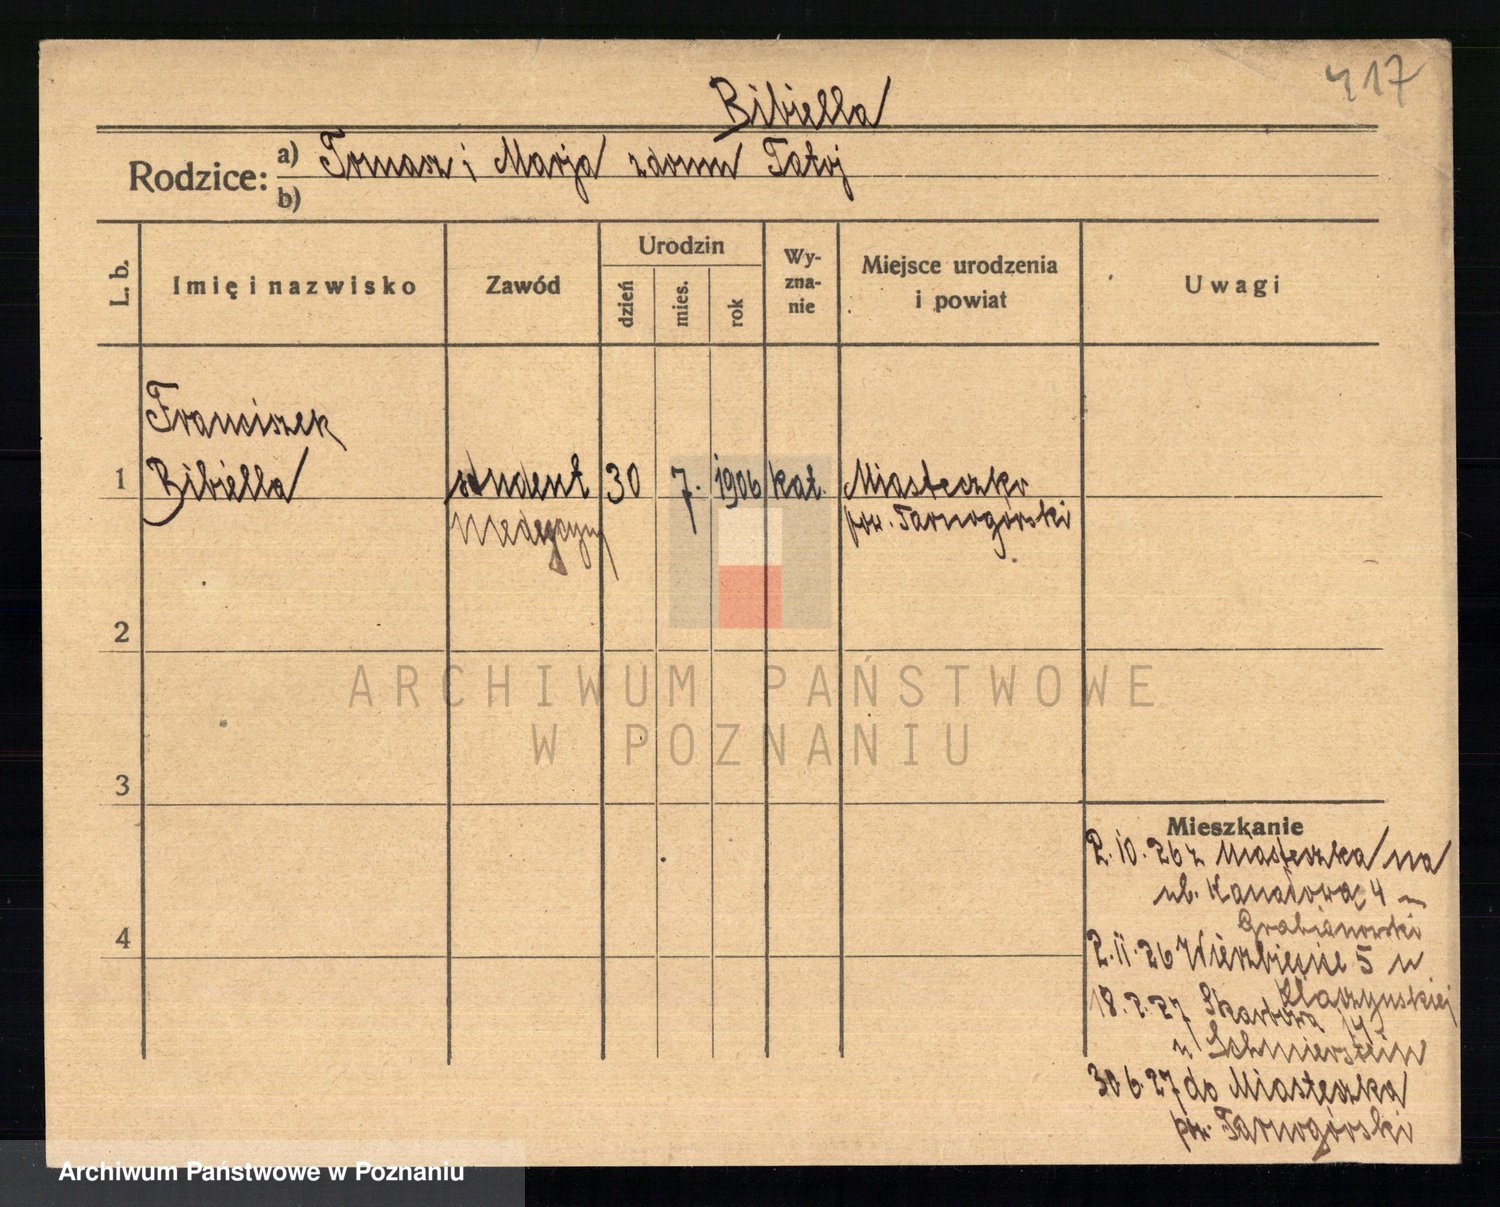 417
Bibiella
Rodzice:
a) Tomasz i Marja z domu Tatoj
b)
L. b.
Imię i nazwisko
Zawód
Urodzin
dzień
mies.
rok
Wy-
zna-
nie
Miejsce urodzenia
i powiat
Uwagi
Franciszek
1 Bibiella student 30 7. 1906 kat. Miasteczko
Medycyny pow. Tarnogórski
2
ARCHIWUM PAŃSTWOWE
W POZNANIU
3
Mieszkanie
2.10.26 z Miasteczka na
ul. Kanałową 4
Grabianowski
4
2.11.26 Wierzbięcine 5 u
18.2.27 Skarbowa
u Schmierstein
30 6 27 do Miasteczka
pow. Tarnogórski
Archiwum Państwowe w Poznaniu